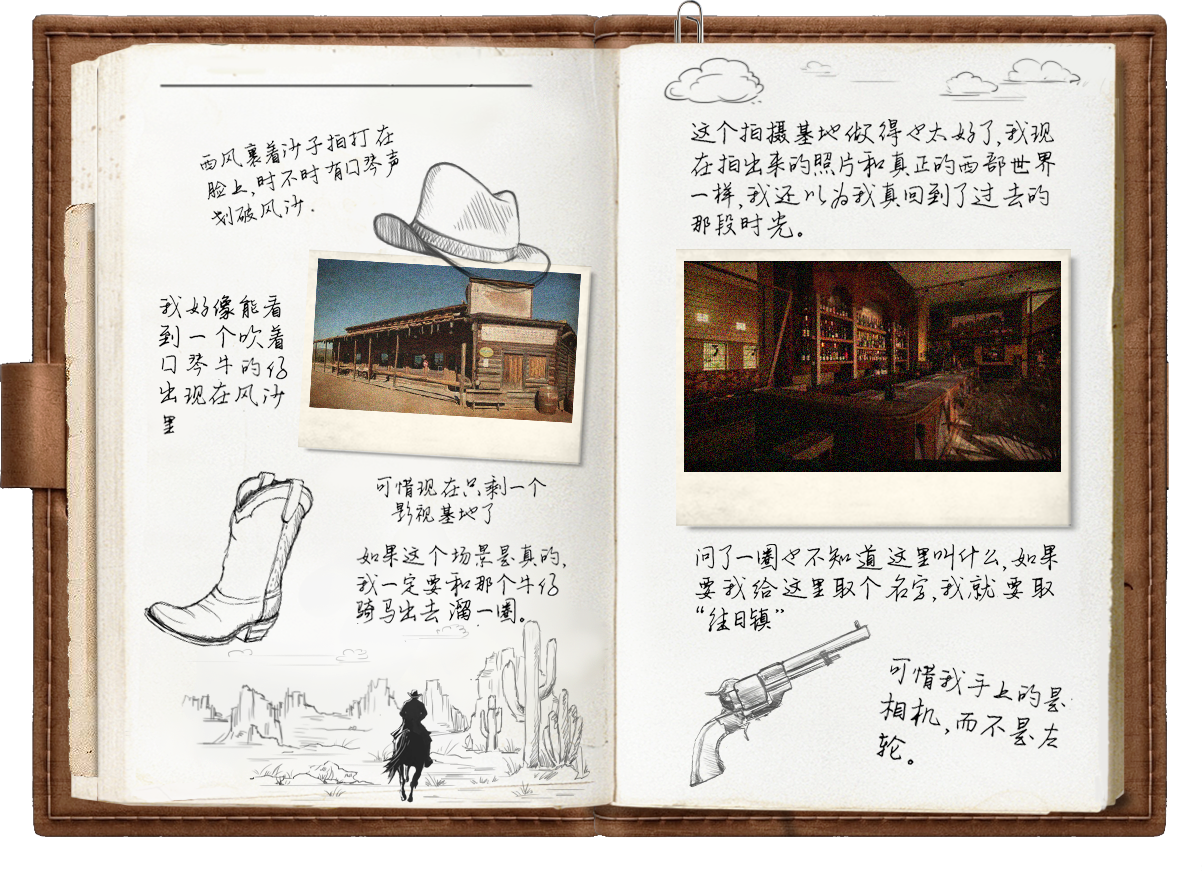 西风裹着沙子拍打在
脸上,时不时有口琴声
划破风沙.
我好像能看
到一个吹着
口琴牛的仔
出现在风沙
里
可惜现在只剩一个
影视基地了
如果这个场景是真的,
我一定要和那个牛仔
骑马出去溜一圈。
这个拍摄基地做得也太好了,我现
在拍出来的照片和真正的西部世界
一样,我还以为我真回到了过去的
那段时光。
问了一圈也不知道这里叫什么,如果
要我给这里取个名字,我就要取
“往日镇”
可惜我手上的是
相机,而不是左
轮。